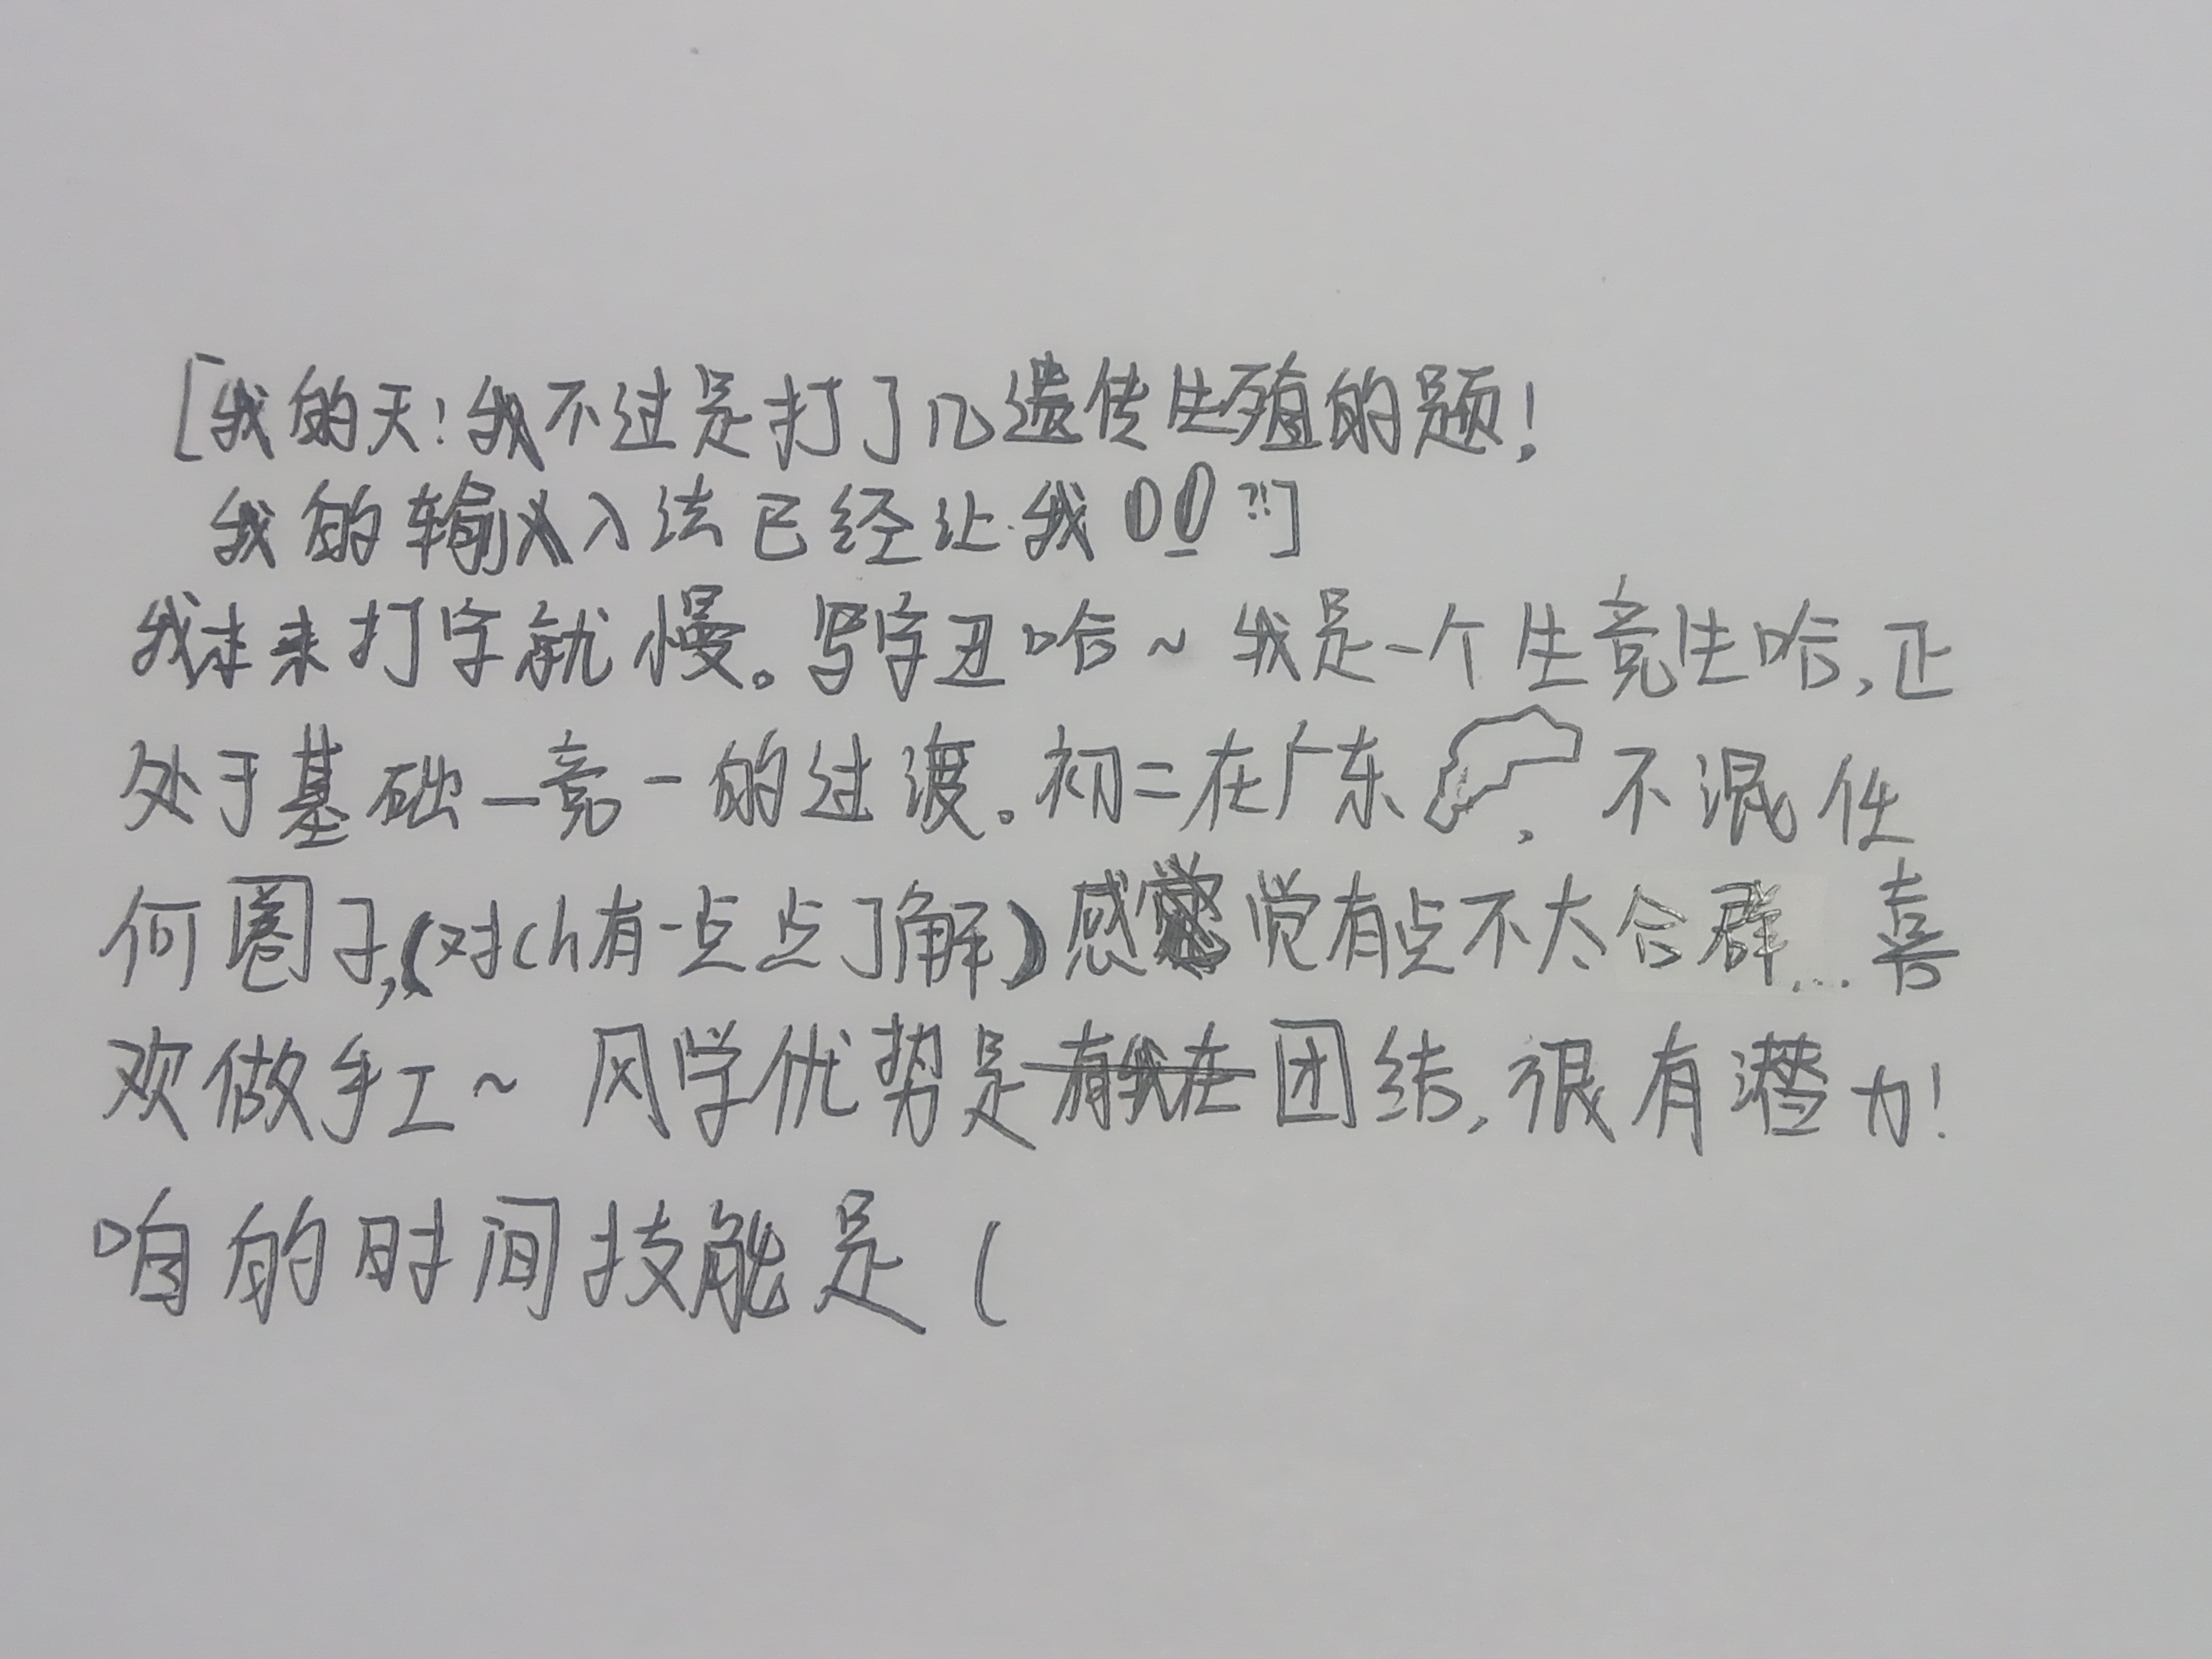 [我的天!我不过是打了几遗传生殖的题!
我的输入法已经让我00?!]
我本来打字就慢。写字丑哈~我是一个生竞生哈,正
处于基础—竞一的过渡。初二在广东,不混任
何圈子,(对ch有一点点了解)感觉有点不太合群...喜
欢做手工~风学优势是有我在团结,很有潜力!
咱的时间技能是(